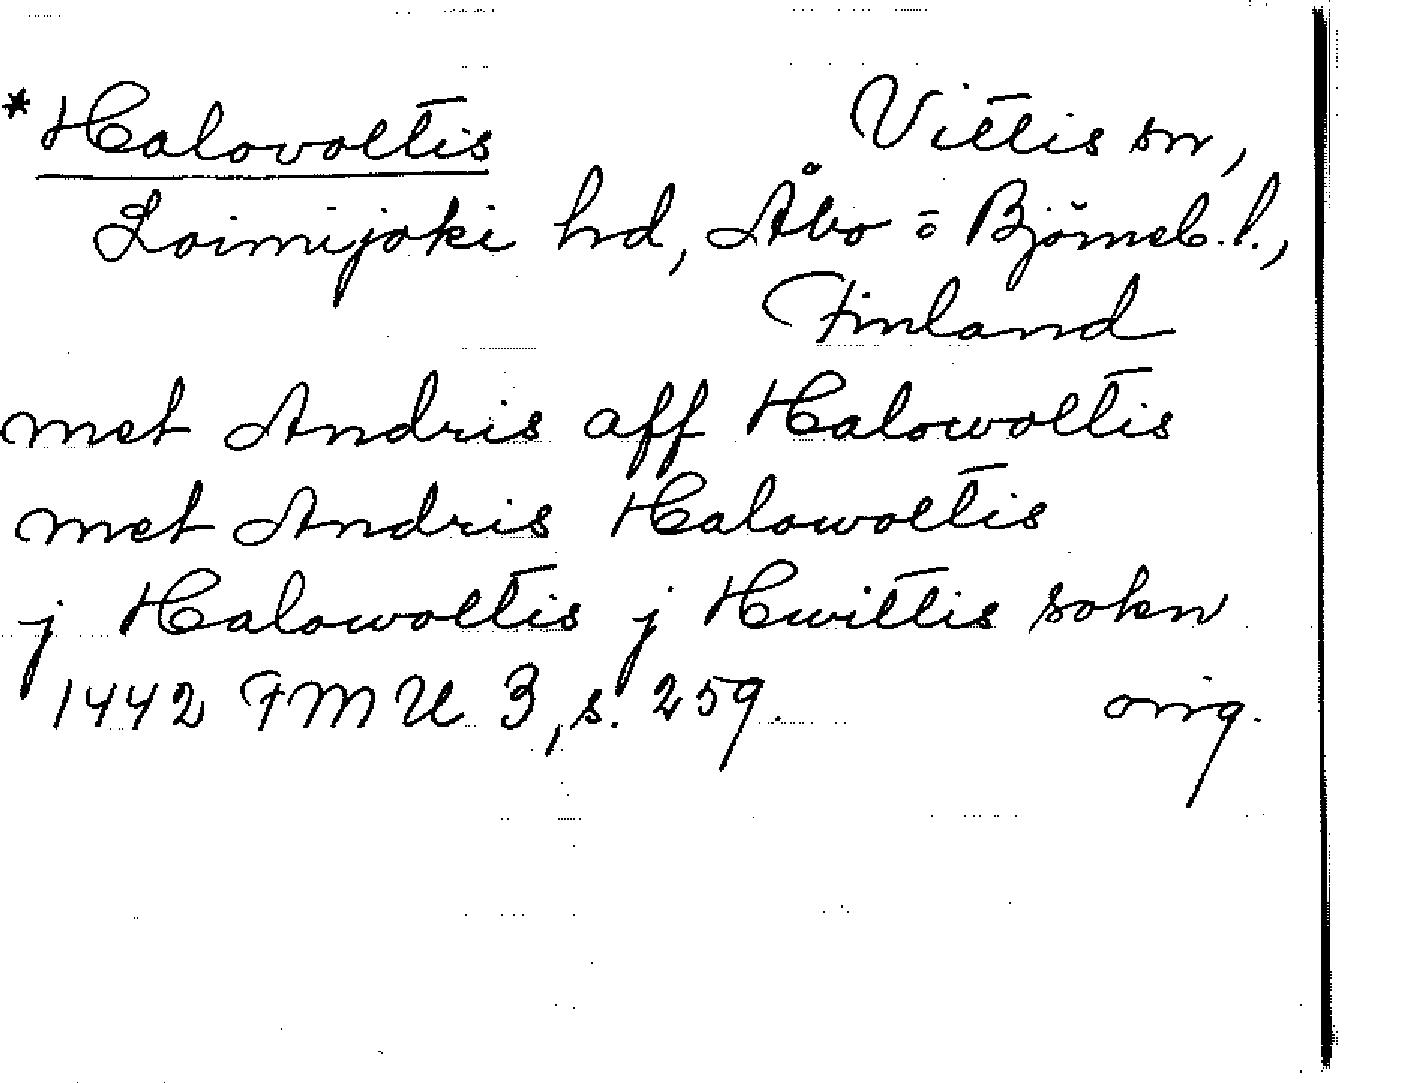 *Halovoltis Vittis sn,
Loimijoki hd, Åbo = Björneb. l.,
Finland
met Andris aff Halowoltis
met Andris Halowoltis
j Halowoltis j Hwittis sokn
1442 FMU 3, s. 259. orig.